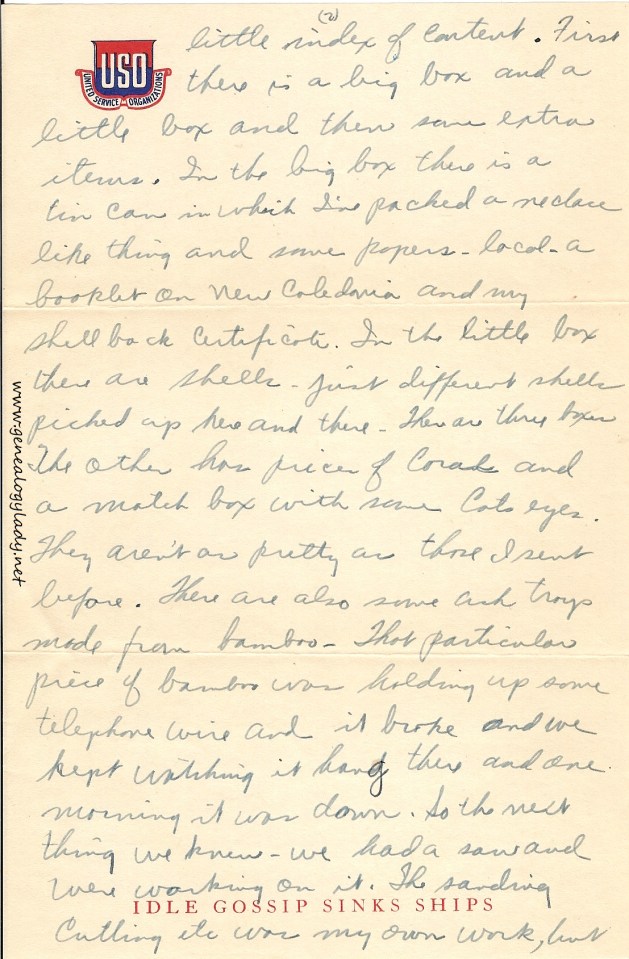 (2)
USO
UNITED SERVICE ORGANIZATIONS
little index of content. First
there is a big box and a
little box and then some extra
items. In the big box there is a
tin can in which I've packed a neclace
like thing and some papers - local - a
booklet on New Caledonia and my
shellback certificate. In the little box
there are shells - just different shells
picked up here and there - There are three boxes
The other has pieces of Coral and
a match box with some Cats eyes.
They aren't as pretty as those I sent
before. There are also some ash trays
made from bamboo - That particular
piece of bamboo was holding up some
telephone wire and it broke and we
kept watching it hang there and one
morning it was down. So the next
thing we knew - we had a saw and
were working on it. The sanding
IDLE GOSSIP SINKS SHIPS
Cutting etc was my own work, but
www.genealogylady.net